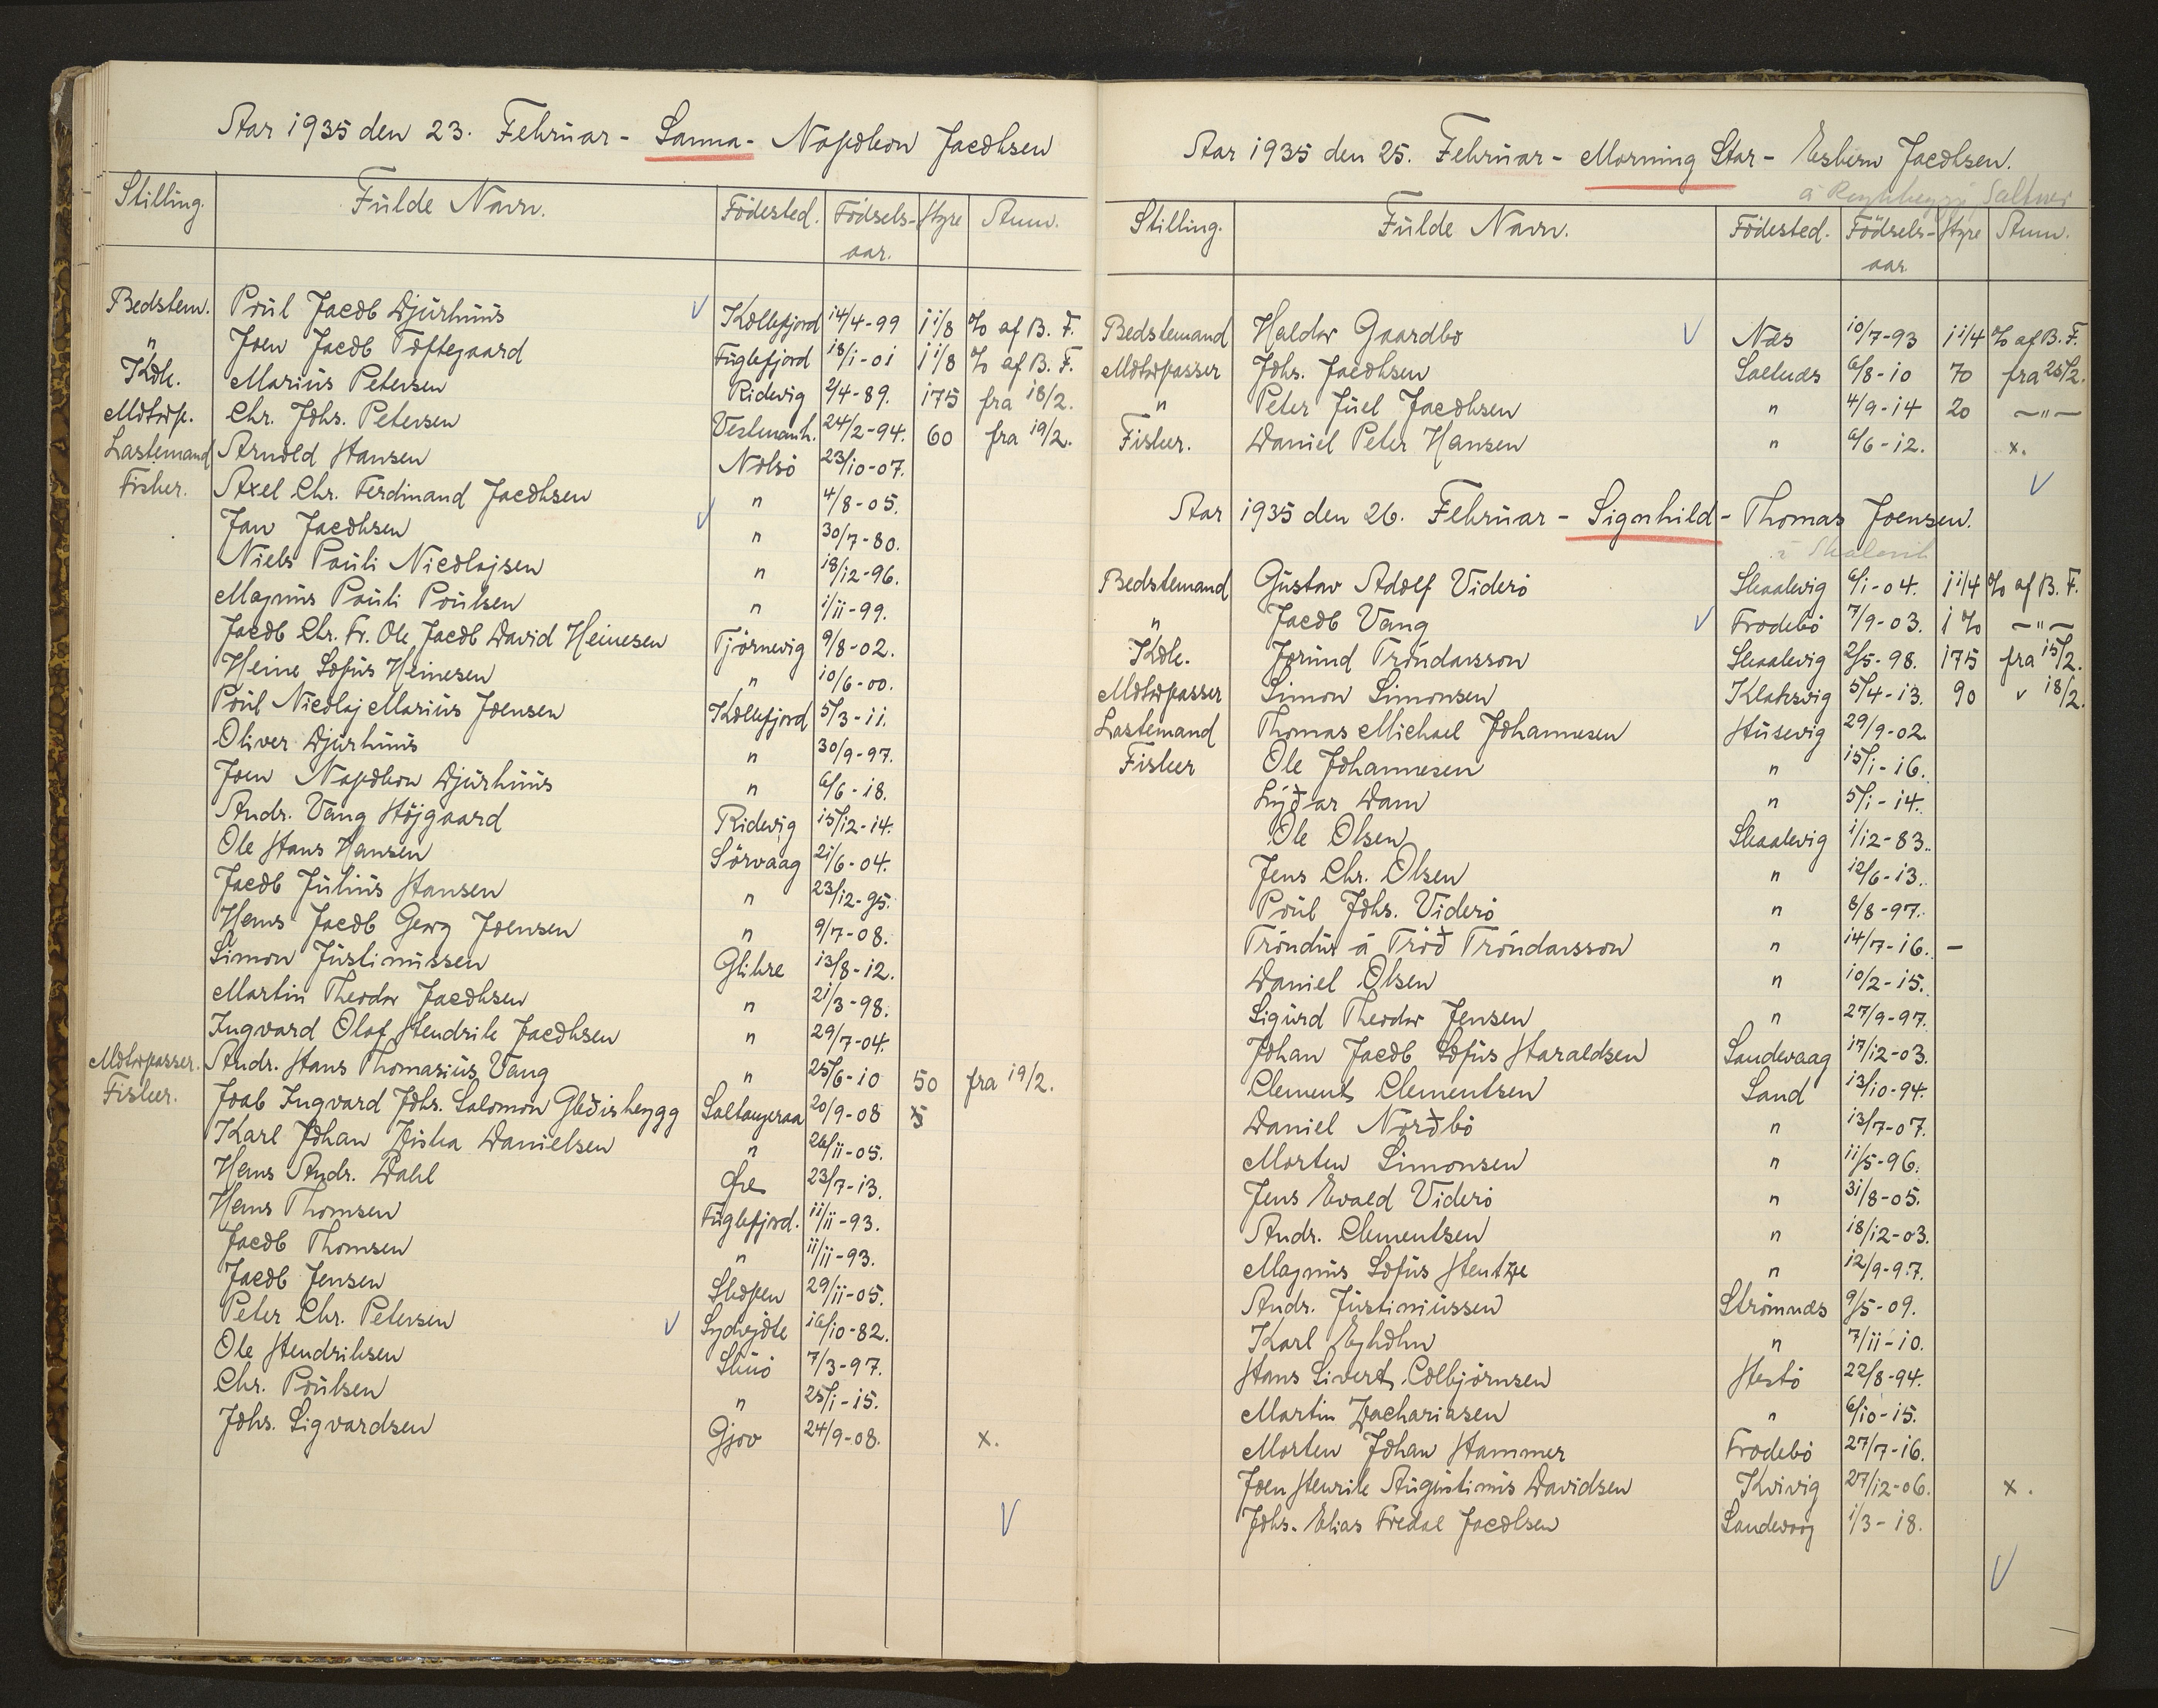 Aar 1935 den 23. Februar - Sanna - Napoleon Jacobsen
Stilling. Fulde Navn. Födested. Födsels-aar. Hyre Anm.
Bedstem. Poul Jacob Djurhuus Kollefjord 14/4-99 1 1/8 % af B. F.
" Joen Jacob Toftegaard Fuglefjord 18/1-01 1 1/8 % af B. F.
Kok. Marius Petersen Ridevig 2/4-89. 175 fra 18/2.
Motorp. Chr. Johs. Petersen Vestmanh. 24/2-94. 60 fra 19/2.
Lastemand Arnold Hansen Nolsö 23/10-07.
Fisker. Axel Chr. Ferdinand Jacobsen " 4/8-05.
Jan Jacobsen " 30/7-80.
Niels Pauli Nicolajsen " 18/12-96.
Magnus Pauli Poulsen " 1/11-99.
Jacob Chr. Fr. Ole Jacob David Heinesen Tjörnevig 9/8-02.
Heine Sofus Heinesen " 10/6-00.
Poul Nicolaj Marius Joensen Kollefjord 5/3-11.
Oliver Djurhuus " 30/9-97.
Joen Napoleon Djurhuus " 6/6-18.
Andr. Vang Höjgaard Ridevig 15/12-14.
Ole Hans Hansen Sörvaag 21/6-04.
Jacob Julius Hansen " 23/12-95.
Hans Jacob Georg Joensen " 9/7-08.
Simon Justinussen Glibre 13/8-12.
Martin Theodor Jacobsen " 21/3-98.
Ingvard Olaf Hendrik Jacobsen " 29/7-04.
Motorpasser. Andr. Hans Thomasius Vang " 25/6-10 50 fra 19/2.
Fisker. Joab Ingvard Johs. Salomon Gleðisheygg Saltangeraa 20/9-08 5
Karl Johan Ziska Danielsen " 26/11-05.
Hans Andr. Dahl Øre 23/7-13.
Hans Thomsen Fuglefjord. 11/11-93.
Jacob Thomsen " 11/11-93.
Jacob Jensen Skopen 29/11-05.
Peter Chr. Petersen Sydrejde 16/10-82.
Ole Hendriksen Skuö 7/3-97.
Chr. Poulsen " 25/1-15.
Johs. Sigvardsen Gjov 24/9-08. x.
Aar 1935 den 25. Februar - Morning Star - Esbern Jacobsen.
Saltnes
Stilling. Fulde Navn. Födested. Födsels-aar. Hyre Anm.
Bedstemand Haldor Gaardbo Næs 10/7-93 1 1/4 % af B. F.
Motorpasser Johs. Jacobsen Saltnæs 6/8-10 70 fra 25/2.
" Peter Juel Jacobsen " 4/9-14 20 -"-
Fisker. Daniel Peter Hansen " 6/6-12. x.
Aar 1935 den 26. Februar - Signhild - Thomas Joensen.
í Skálavík
Bedstemand Gustav Adolf Viderö Skaalevig 6/1-04. 1 1/4 % af B. F.
" Jacob Vang Frodebö 7/9-03. 1 % -"-
Kok. Jorund Tróndarsson Skaalevig 2/5-98. 175 fra 15/2.
Motorpasser Simon Simonsen Klaksvig 5/4-13. 90 " 18/2.
Lastemand Thomas Michael Johannesen Husevig 29/9-02.
Fisker Ole Johannesen " 15/1-16.
Lýðar Dam " 5/1-14.
Ole Olsen Skaalevig 1/12-83.
Jens Chr. Olsen " 12/6-13.
Poul Johs. Viderö " 8/8-97.
Tróndur á Tröð Tróndarsson " 14/7-16. -
Daniel Olsen " 10/2-15.
Sigurd Theodor Jensen " 27/9-97.
Johan Jacob Sofus Haraldsen Sandevaag 17/12-03.
Clement Clementsen Sand 13/10-94.
Daniel Norðbö " 13/7-07.
Morten Simonsen " 11/5-96.
Jens Evald Viderö " 31/8-05.
Andr. Clementsen " 18/12-03.
Magnus Sofus Hentze " 12/9-97.
Andr. Justinussen Strömnæs 9/5-09.
Karl Eyholm " 7/11-10.
Hans Sivert Colbjörnsen Hestö 22/8-94.
Martin Zachariasen " 6/10-15.
Morten Johan Hammer Frodebö 27/7-16.
Joen Henrik Augustinus Davidsen Kvivig 27/12-06. x.
Johs. Elias Fredal Jacobsen Sandevaag 1/3-18.